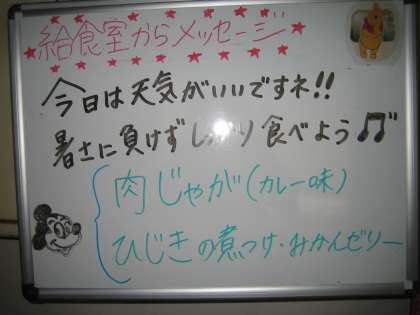 給食室からメッセージ
今日は天気がいいですネ!!
暑さに負けずしっかり食べよう♫
肉じゃが(カレー味)
ひじきの煮つけ・みかんゼリー